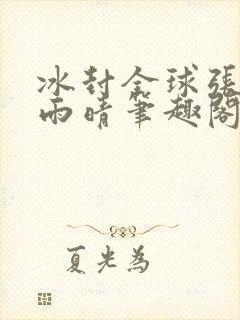 冰封全球張
雨晴筆趣閣
夏光為